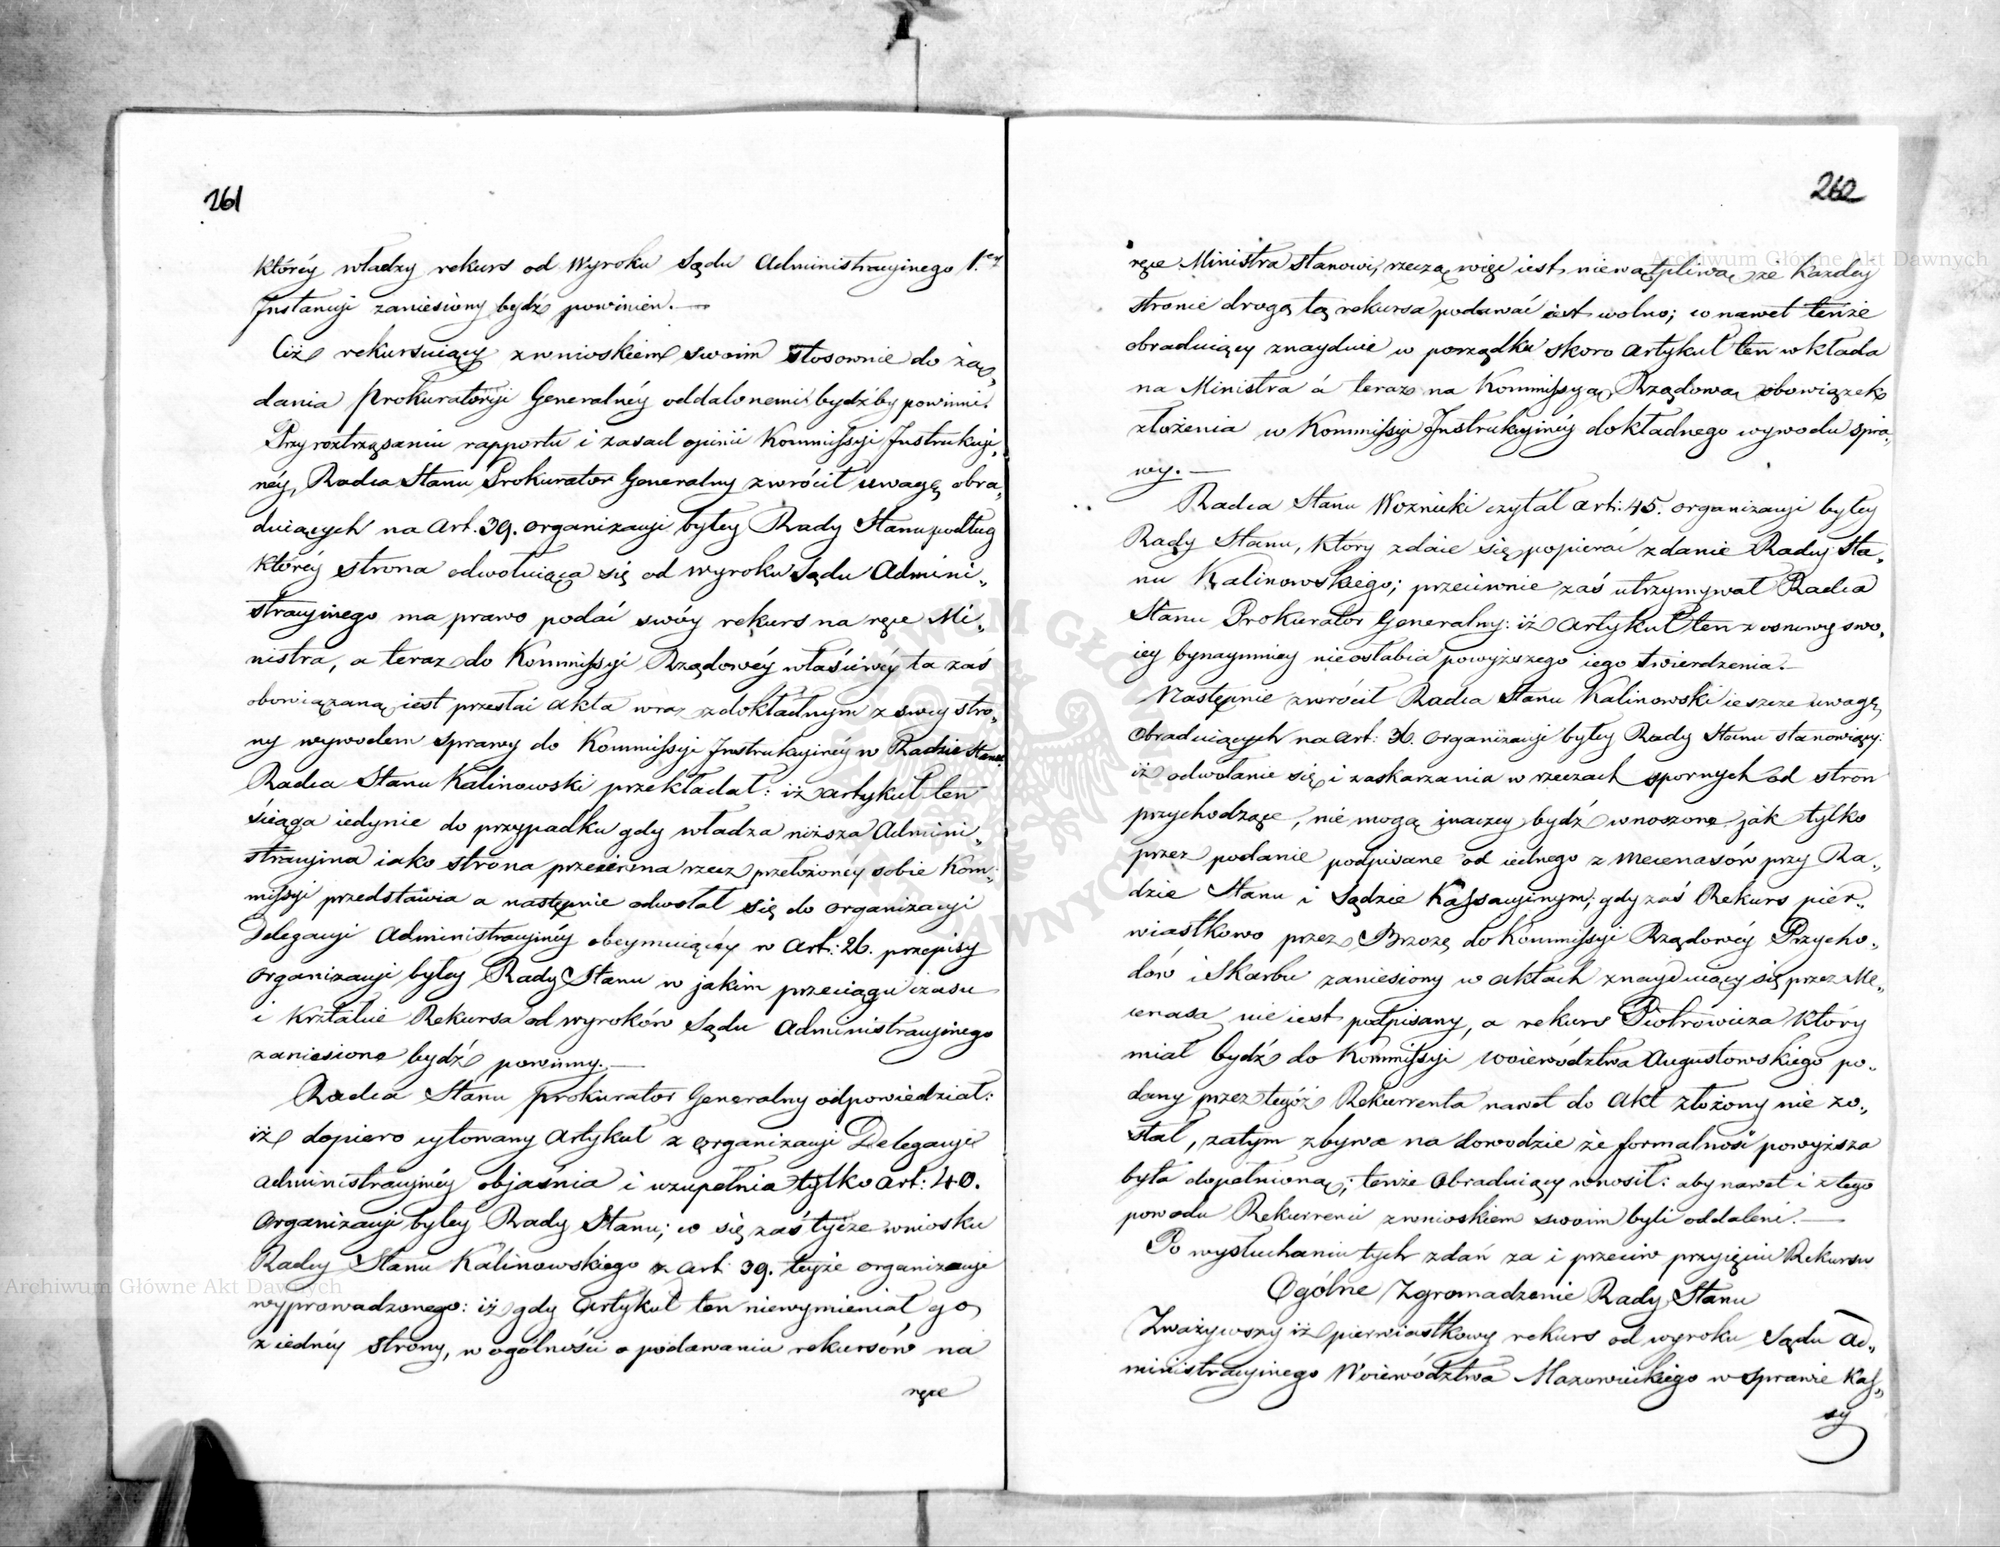 261
którey władzy rekurs od Wyroku Sądu Administracyinego 1.ey
Instancyi zaniesiony bydź powinien. —
Ciż rekursuiący z wnioskiem swoim stosownie do żą„
dania Prokuratoryi Generalnéy oddalonemi bydźby powinni.
Przy roztrząsaniu rapportu i zasad opinii Kommissyi Instrukcyi„
néy, Radca Stanu Prokurator Generalny zwrócił uwagę obra„
duiących na Art. 39. organizacyi byłey Rady Stanu podług
któréy strona odwołuiąca się od wyroku Sądu Admini„
stracyinego ma prawo podać swóy rekurs na ręce Mi„
nistra, a teraz do Kommissyi Rządowéy właściwéy ta zaś
obowiązaną iest przesłać akta wraz z dokładnym z swey stro„
ny wywodem sprawy do Kommissyi Instrukcyinéy w Radzie Stanu.
Radca Stanu Kalinowski przekładał: iż artykuł ten
ściąga iedynie do przypadku gdy władza niższa Admini„
stracyina iako strona przeciwna rzecz przełożonéy sobie Kom„
missyi przedstawia a następnie odwołał się do organizacyi
Delegacyi Administracyinéy obeymuiącéy w Art: 26. przepisy
organizacyi byłey Rady Stanu w jakim przeciągu czasu
i kształcie Rekursa od wyroków Sądu Administracyinego
zaniesione bydź powinny. —
Radca Stanu Prokurator Generalny odpowiedział:
iż dopiero cytowany Artykuł z organizacyi Delegacyi
administracyinéy objaśnia i uzupełnia tylko art: 40.
Organizacyi byłey Rady Stanu; co się zaś tycze wniosku
Radcy Stanu Kalinowskiego z art: 39. teyże organizacyi
wyprowadzonego: iż gdy Artykuł ten niewymieniał go
z iednéy strony, w ogólności o podawaniu rekursów na
ręce
262
ręce Ministra stanowi, rzeczą więc iest niewątpliwą że Każdey
stronie drogą tą rekursa podawać iest wolno; co nawet tenże
obraduiący znayduie w porządku skoro artykuł ten wkłada
na Ministra á teraz na Kommissyą Rządową obowiązek
złożenia w Kommissyi Instrukcyinéy dokładnego wywodu spra„
wy. —
Radca Stanu Woznicki czytał art: 45. organizacyi byłey
Rady Stanu, który zdaie się popierać zdanie Radcy Sta„
nu Kalinowskiego; przeciwnie zaś utrzymywał Radca
Stanu Prokurator Generalny: iż Artykuł ten z osnowy swo„
iey bynaymniey nieosłabia powyższego iego twierdzenia. —
Następnie zwrócił Radca Stanu Kalinowski ieszcze uwagę
Obraduiących na Art: 36. organizacyi byłey Rady Stanu stanowiący:
iż odwołanie się i zaskarzania w rzeczach spornych od stron
przychodzące, nie mogą inaczey bydź wnoszone jak tylko
przez podanie podpisane od iednego z Mecenasów przy Ra„
dzie Stanu i Sądzie Kassacyinym; gdy zaś Rekurs pier„
wiastkowo przez Brzozę do Kommissyi Rządowéy Przycho„
dów i Skarbu zaniesiony w aktach znayduiący się przez Me„
cenasa nie iest podpisany, a rekurs Piotrowicza który
miał bydź do Kommissyi Woiewództwa Augustowskiego po„
dany przez tegóż Rekurrenta nawet do Akt złożony nie zo„
stał, zatym zbywa na dowodzie że formalność powyższa
była dopełnioną; tenże Obraduiący wnosił: aby nawet i z tego
powodu Rekurrenci z wnioskiem swoim byli oddaleni. —
Po wysłuchaniu tych zdań za i przeciw przyięciu Rekursu
Ogólne Zgromadzenie Rady Stanu
Zważywszy iż pierwiastkowy rekurs od wyroku Sądu Ad„
ministracyinego Woiewództwa Mazowieckiego w sprawie Kas„
sy
Archiwum Główne Akt Dawnych
Archiwum Główne Akt Dawnych